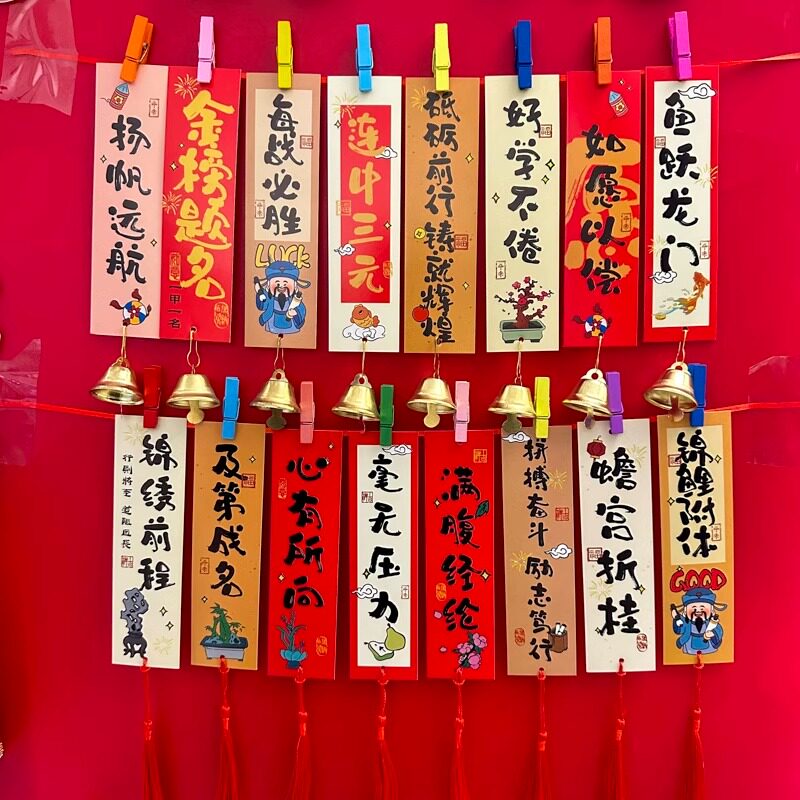 扬帆远航
金榜题名
一甲一名
每战必胜
LUCK
连中三元
砥砺前行 铸就辉煌
好学不倦
如愿以偿
鱼跃龙门
锦绣前程
行则将至 道阻且长
及第成名
心有所向
毫无压力
满腹经纶
拼搏奋斗 励志笃行
蟾宫折桂
锦鲤附体
GOOD